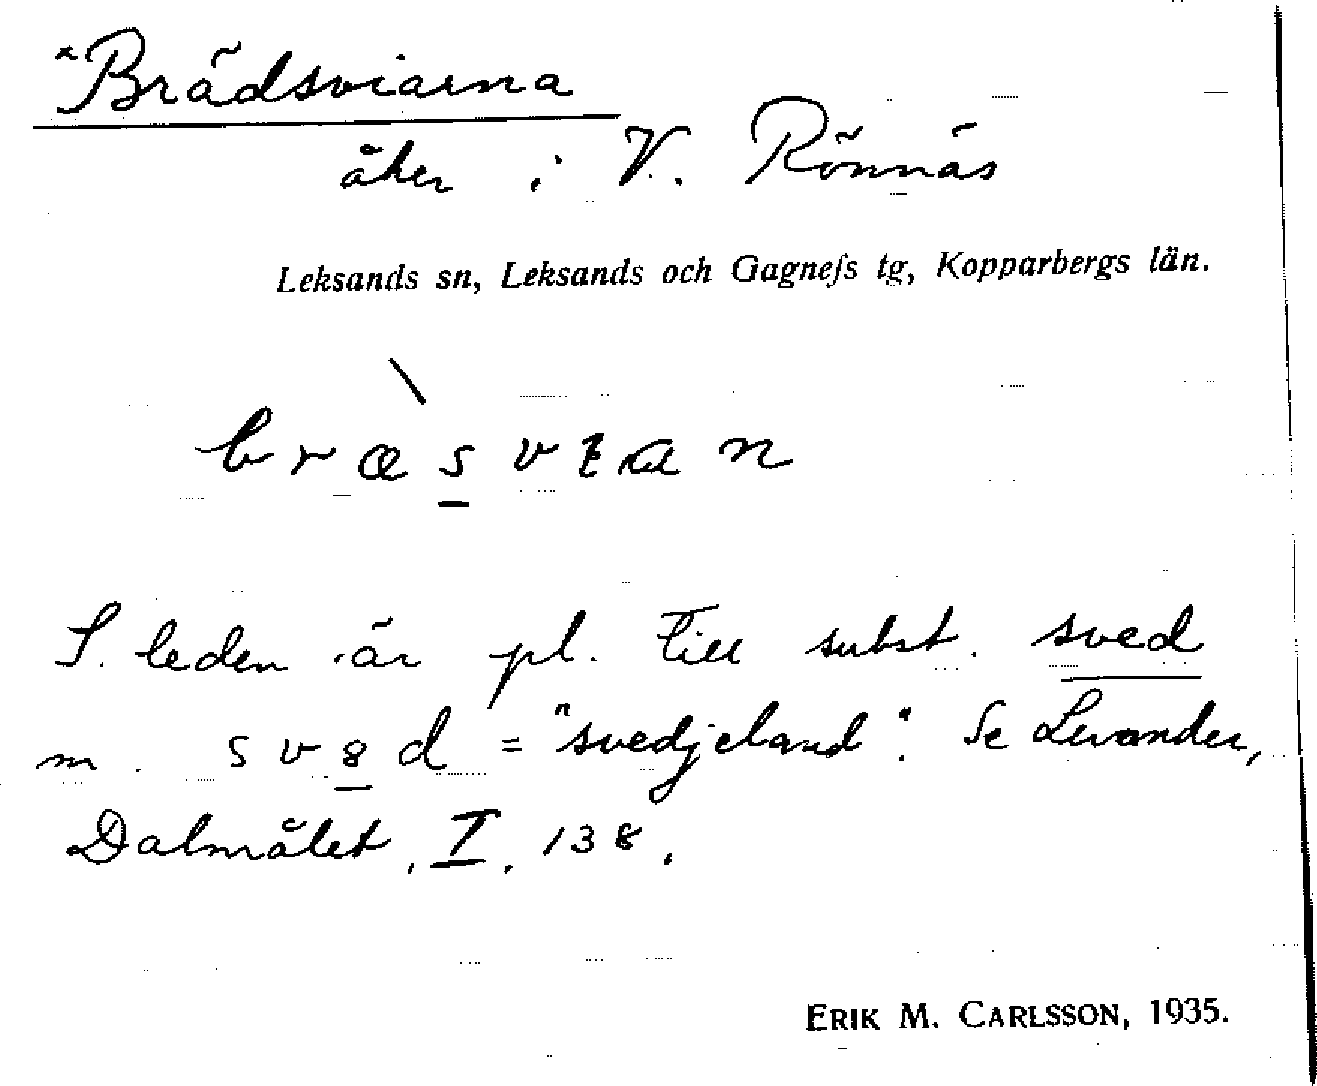 *Brädsviarna
åker i V. Rönnäs
Leksands sn, Leksands och Gagnefs tg, Kopparbergs län.
bræsvɩan
S. leden är pl. till subst. sved
m. sv8d = "svedjeland". Se Levander,
Dalmålet, I, 138.
ERIK M. CARLSSON, 1935.